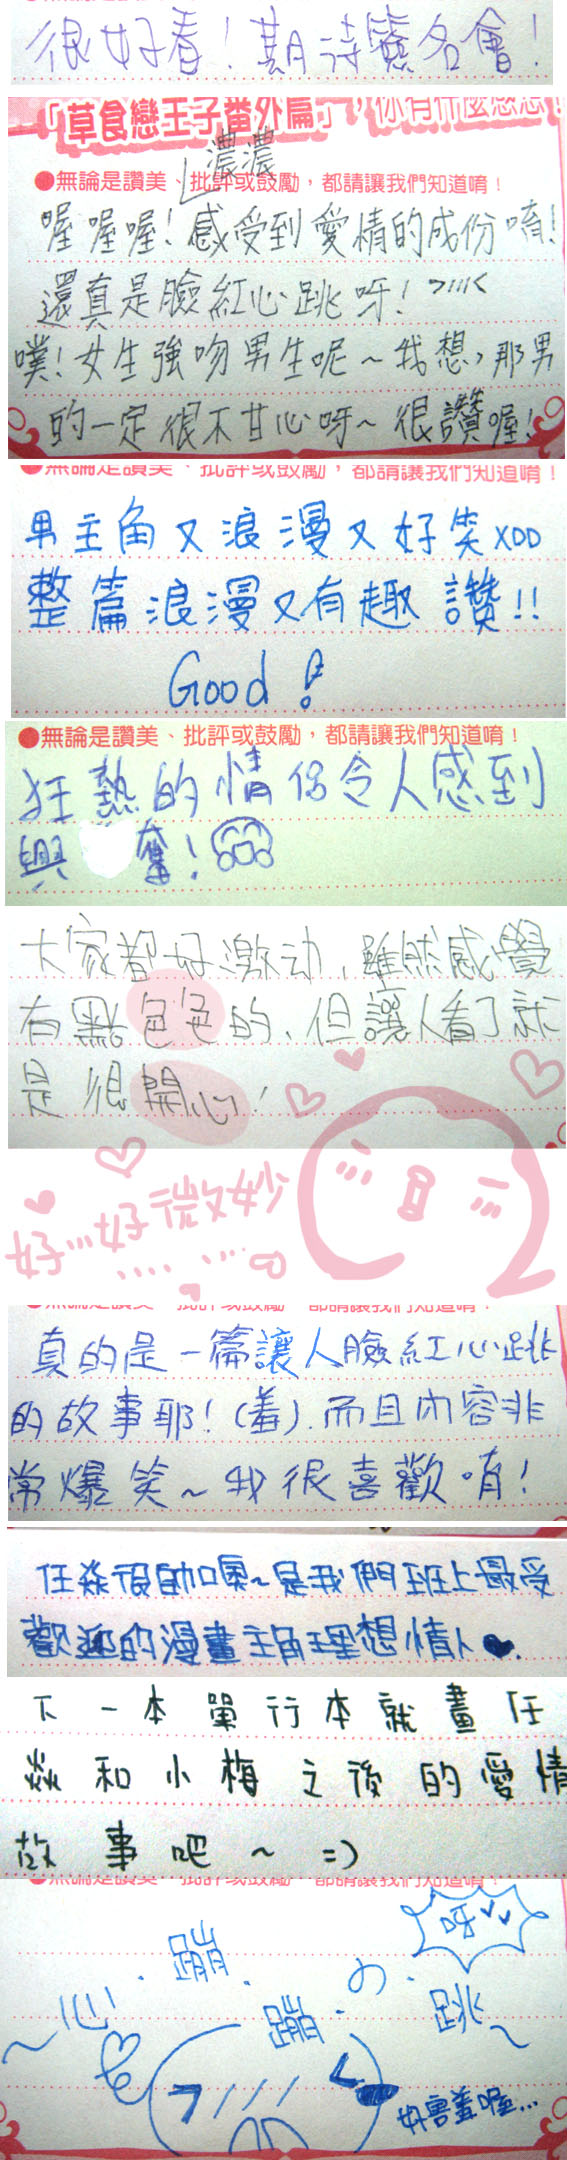 很好看！期待簽名會！
「草食戀王子番外篇」，你有什麼感想！
●無論是讚美、批評或鼓勵，都請讓我們知道唷！
濃濃
喔喔喔！感受到愛情的成份唷！
還真是臉紅心跳呀！>///<
噗！女生強吻男生呢～我想，那男
的一定很不甘心呀～很讚喔！
●無論是讚美、批評或鼓勵，都請讓我們知道唷！
男主角又浪漫又好笑XDD
整篇浪漫又有趣讚!!
Good！
●無論是讚美、批評或鼓勵，都請讓我們知道唷！
狂熱的情侶令人感到
興奮！
大家都好激动，雖然感覺
有點色色的，但讓人看了就
是很開心！
好…好微妙
......
●無論是讚美、批評或鼓勵，都請讓我們知道唷！
真的是一篇讓人臉紅心跳
的故事耶！(羞)．而且內容非
常爆笑～我很喜歡唷！
任焱很帥噢～是我們班上最受
歡迎的漫畫主角理想情人♥.
下一本單行本就畫任
焱和小梅之後的愛情
故事吧～ =)
●無論是讚美、批評或鼓勵，都請讓我們知道唷！
呀
～心．蹦．蹦．の．跳～
好害羞喔...